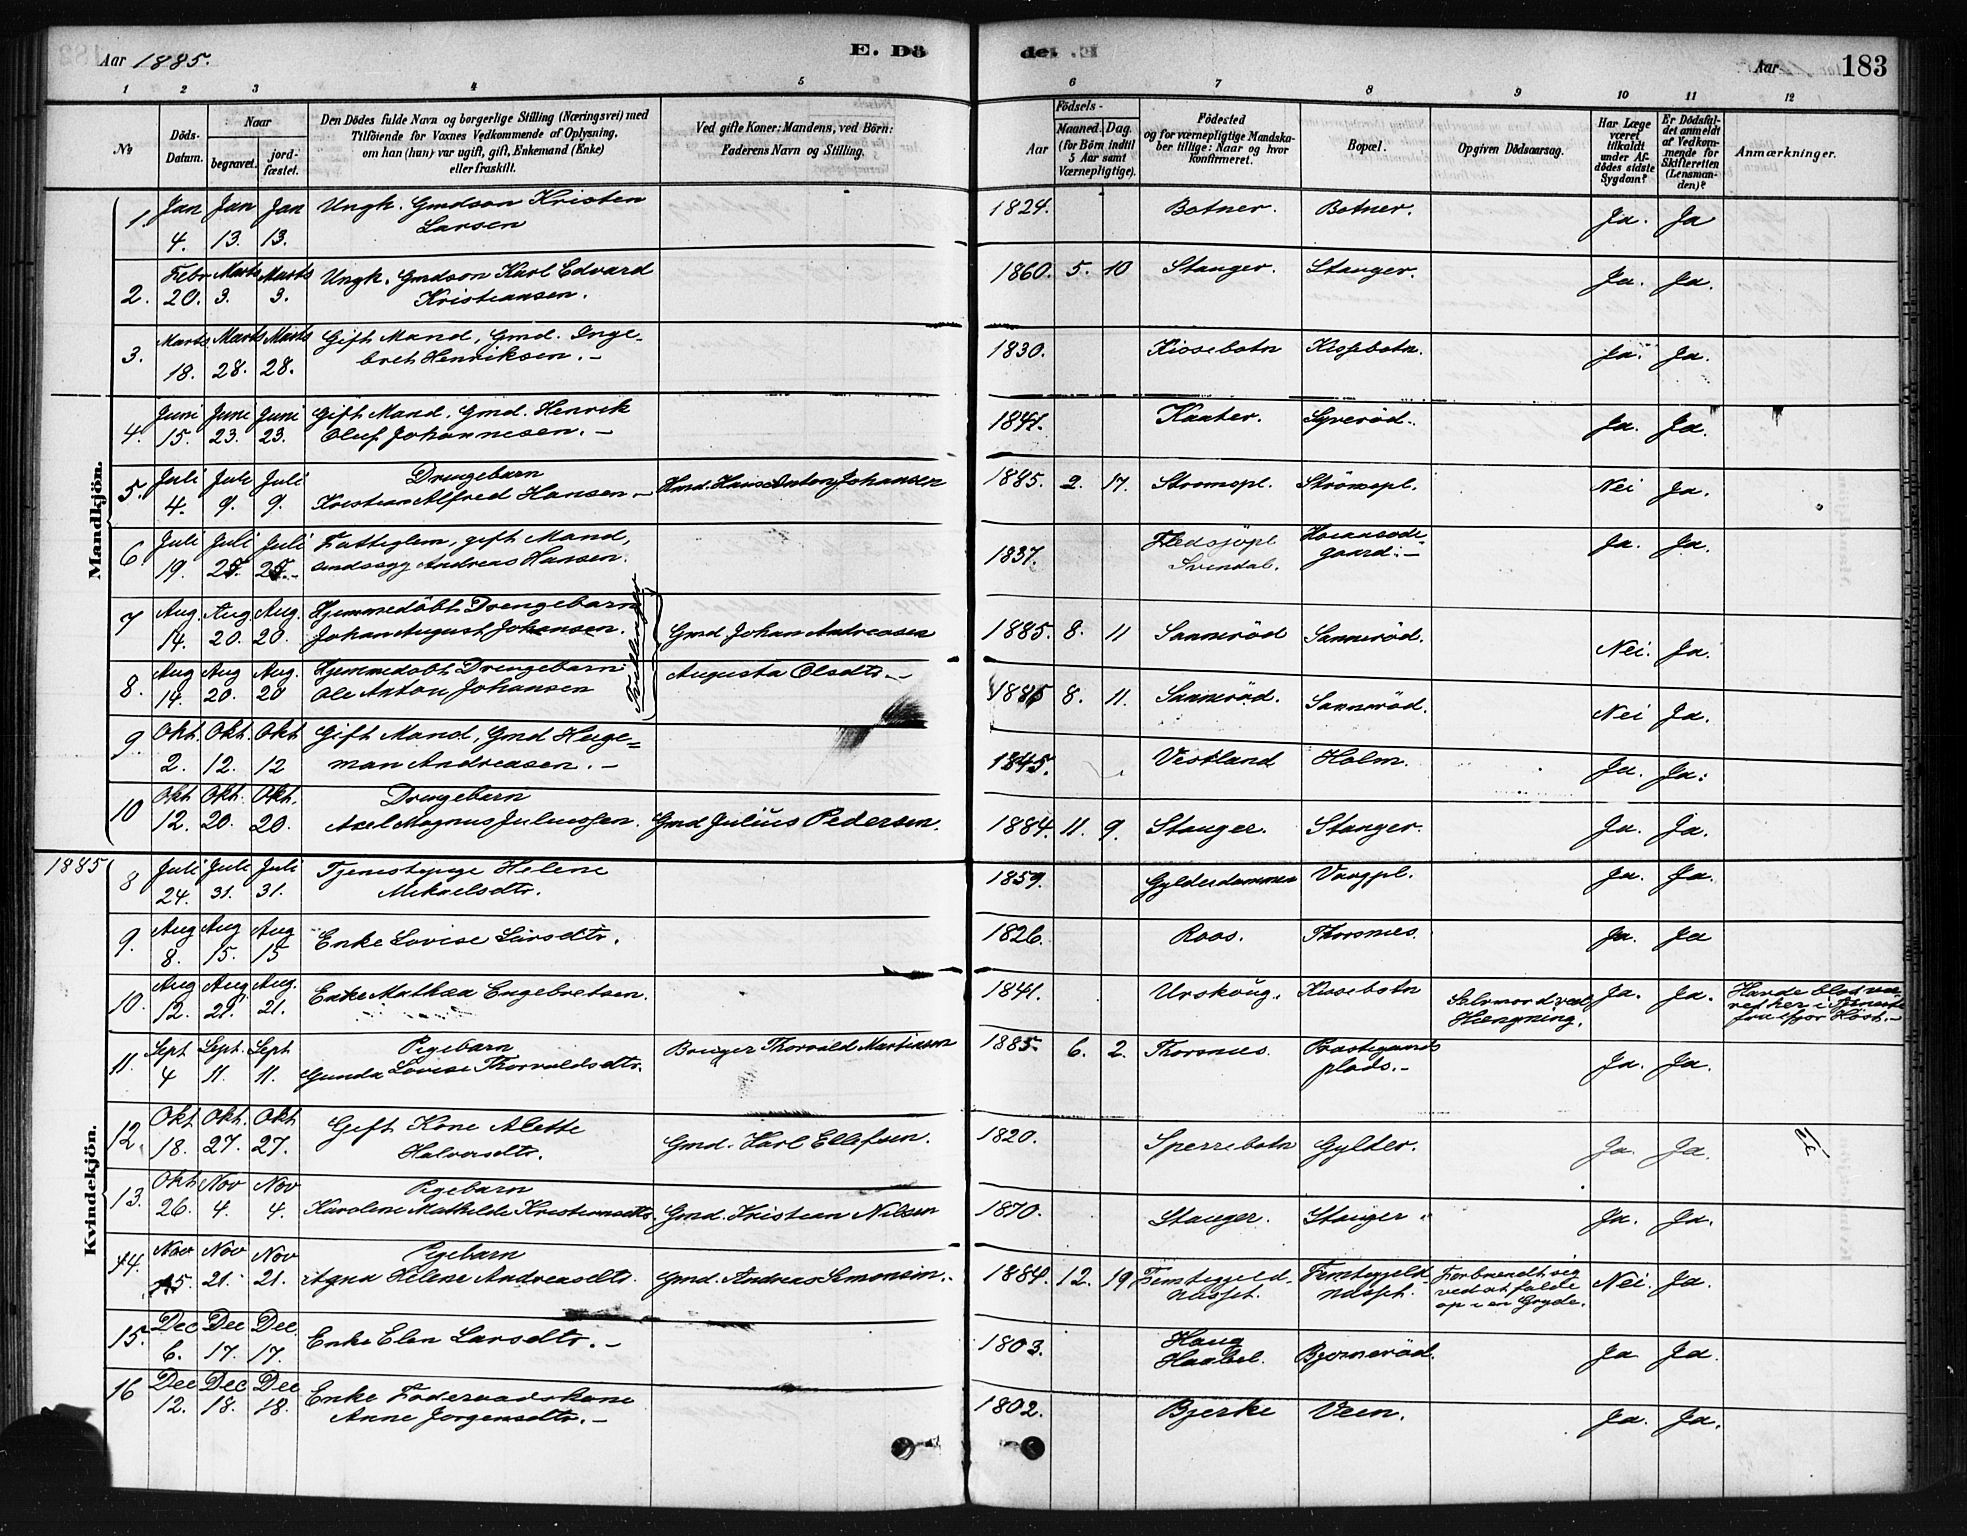 Aar 1885.
E. Dö
de. E.
Aar
183
1 2 3 4 5 6 7 8 9 10 11 12
No
Döds-Datum.
Naar
begravet.
jord-fæstet.
Den Dödes fulde Navn og borgerlige Stilling (Næringsvei) med
Tilföiende for Voxnes Vedkommende af Oplysning,
om han (hun) var ugift, gift, Enkemand (Enke)
eller fraskilt.
Ved gifte Koner: Mandens, ved Börn:
Faderens Navn og Stilling.
Födsels-
Aar
Maaned. Dag.
(for Börn indtil
5 Aar samt
Værnepligtige).
Födested
og for værnepligtige Mandska-
ber tillige: Naar og hvor
konfirmeret.
Bopæl.
Opgiven Dödsaarsag.
Har Læge
været
tilkaldt
under Af-
dödes sidste
Sygdom?
Er Dödsfal-
det anmeldt
af Vedkom-
mende for
Skifteretten
(Lensman-
den)?
Anmærkninger.
Mandkjön.
1. Jan 4. Jan 13. Jan 13. Ungk. Gmdson Kristen Larsen 1824. Botner. Botner. Ja. Ja
2. Febr 20. Marts 3. Marts 3. Ungk. Gmdson Karl Edvard Kristiansen. 1860. 5. 10 Stanger. Stanger. Ja. Ja.
3. Marts 18. Marts 28. Marts 28. Gift Mand, Gmd. Inge- bret Henriksen. – 1830. Kissebotn Kissebotn. Ja. Ja.
4. Juni 15. Juni 23. Juni 23. Gift Mand, Gmd. Henrik Oluf Johannesen. – 1841. Kaater. Syverød. Ja. Ja.
5. Juli 4. Juli 9. Juli 9. Drengebarn Kristian Alfred Hansen – Hmd. Hans Anton Johansen 1885. 2. 17. Stromspl. Strömspl. Nei Ja.
6 Juli 19. Juli 25. Juli 25. – Fattiglem, gift Mand, sindssyg Andreas Hansen. 1837. Svindal. gaard. – Ja. Ja.
7 Aug 14. Aug 20. Aug. 20. Hjemmedöbt Drengebarn Johan August Johansen. Gmd Johan Andreasen 1885. 8. 11 Sannerød Sannerød. Nei. Ja.
Tvillinger
8. Aug 14. Aug 20. Aug. 20 Hjemmedöbt Drengebarn Ole Anton Johansen Augusta Olsdtr – 1885 8. 11. Sannerød. Sannerød. Nei Ja.
9. Okt. 2. Okt. 12. Okt 12 Gift Mand, Gmd Hage= man Andreasen. – 1845. Vestland Holm. Ja. Ja.
10 Okt 12. Okt. 20. Okt. 20. Drengebarn Axel Magnus Juliussen. Gmd Julius Pedersen. 1884. 11. 9. Stanger. Stanger. Ja. Ja.
1885
Kvindekjön.
8 Juli 24. Juli 31. Juli 31. Tjenestepige Helene Mikaelsdtr. 1859. Gylderdammen Vaagpl. Ja. Ja.
9. Aug 8. Aug 15. Aug 15 Enke Lovise Larsdtr. 1826. Roos. Thorsnes. Ja. Ja
10. Aug 12. Aug 21. Aug. 21. Enke Mathea Engebretsen. 1841. Urskoug. Kissebotn Selvmord ved Hængning. Ja. Ja. Havde blot væ- ret her i Tjeneste fra ifjor Høst. –
11. Sept 4 Sept. 11. Sept 11. Pigebarn Gunda Lovise Thorvaldsdtr. Bruger Thorvald Martinsen 1885. 6. 2. Thorsnes. Præstegaards plads. – Ja. Ja.
12. Okt 18. Okt. 27. Okt 27. Gift Kone Alette Halvorsdtr. Gmd. Karl Ellefsen. 1820. Sperrebotn Gylder. Ja. Ja.
13. Okt 26. Nov 4. Nov 4. Pigebarn Karoline Mathilde Kristiansdtr. Gmd. Kristian Nilsen 1870. Stanger. Stanger. Ja. Ja.
14. Nov 15. Nov 21. Nov 21. Pigebarn Agna Helene Andreasdtr. Gmd. Andreas Simonsen. 1884. 12. 19 Femtegjeld- næsset. Femtegjeld- næsset. Forbrændt sig ved at falde op i en Gryde. Nei. Ja.
15. Dec 6. Dec 17. Dec. 17. Enke Elen Larsdtr. – 1803. Haug Haabel. Bjørnerød. Ja Ja.
16 Dec 12. Dec 18. Dec 18. Enke Føderaadskone Anne Jørgensdtr. – 1802. Bjerke Veen. Ja. Ja.